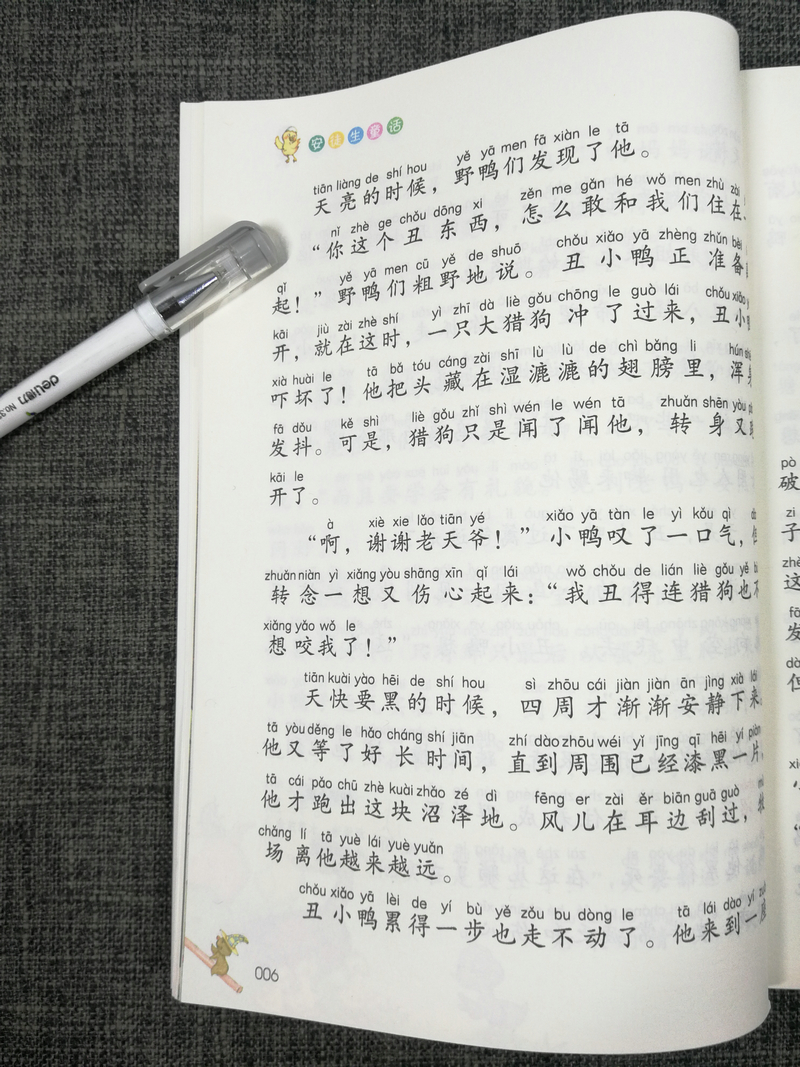 安徒生童话
tiān liàng de shí hou yě yā men fā xiàn le tā
天亮的时候，野鸭们发现了他。
nǐ zhè ge chǒu dōng xi zěn me gǎn hé wǒ men zhù zài
“你这个丑东西，怎么敢和我们住在
qǐ yě yā men cū yě de shuō chǒu xiǎo yā zhèng zhǔn bèi
起！”野鸭们粗野地说。丑小鸭正准备
kāi jiù zài zhè shí yì zhī dà liè gǒu chōng le guò lái chǒu xiǎo
开，就在这时，一只大猎狗冲了过来，丑小
xià huài le tā bǎ tóu cáng zài shī lù lù de chì bǎng li hún
吓坏了！他把头藏在湿漉漉的翅膀里，浑
fā dǒu kě shì liè gǒu zhǐ shì wén le wén tā zhuǎn shēn yòu
发抖。可是，猎狗只是闻了闻他，转身又
kāi le
开了。
à xiè xie lǎo tiān yé xiǎo yā tàn le yì kǒu qì
“啊，谢谢老天爷！”小鸭叹了一口气，
zhuǎn niàn yì xiǎng yòu shāng xīn qǐ lái wǒ chǒu de lián liè gǒu yě
转念一想又伤心起来：“我丑得连猎狗也不
xiǎng yǎo wǒ le
想咬我了！”
tiān kuài yào hēi de shí hou sì zhōu cái jiàn jiàn ān jìng xià lái
天快要黑的时候，四周才渐渐安静下来。
tā yòu děng le hǎo cháng shí jiān zhí dào zhōu wéi yǐ jīng qī hēi yí piàn
他又等了好长时间，直到周围已经漆黑一片，
tā cái pǎo chū zhè kuài zhǎo zé dì fēng er zài ěr biān guā guò
他才跑出这块沼泽地。风儿在耳边刮过，
chǎng lí tā yuè lái yuè yuǎn
场离他越来越远。
chǒu xiǎo yā lèi de yí bù yě zǒu bu dòng le tā lái dào yí
丑小鸭累得一步也走不动了。他来到一
006
deli得力
No.
破
pò
子
zi
这
zhè
发
但